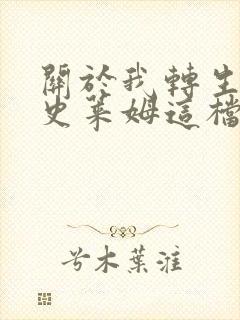 關於我轉生
史萊姆這檔
兮木葉淮